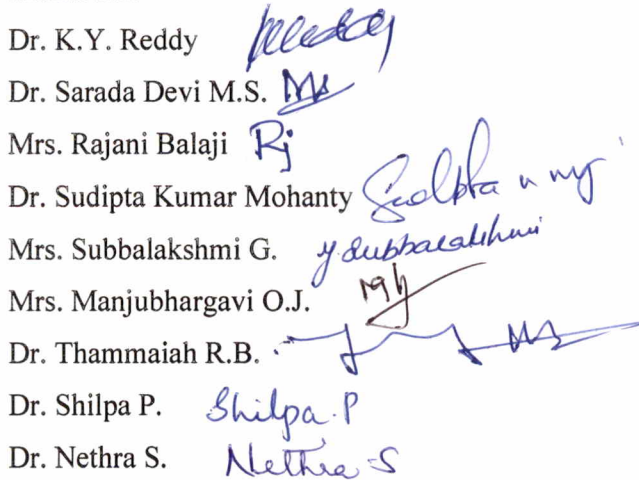 Dr. K.Y. Reddy KReddy
Dr. Sarada Devi M.S.
Mrs. Rajani Balaji Rj
Dr. Sudipta Kumar Mohanty Sudipta
Mrs. Subbalakshmi G. G Subbalakshmi
Mrs. Manjubhargavi O.J.
Dr. Thammaiah R.B.
Dr. Shilpa P. Shilpa.P
Dr. Nethra S. Nethra S